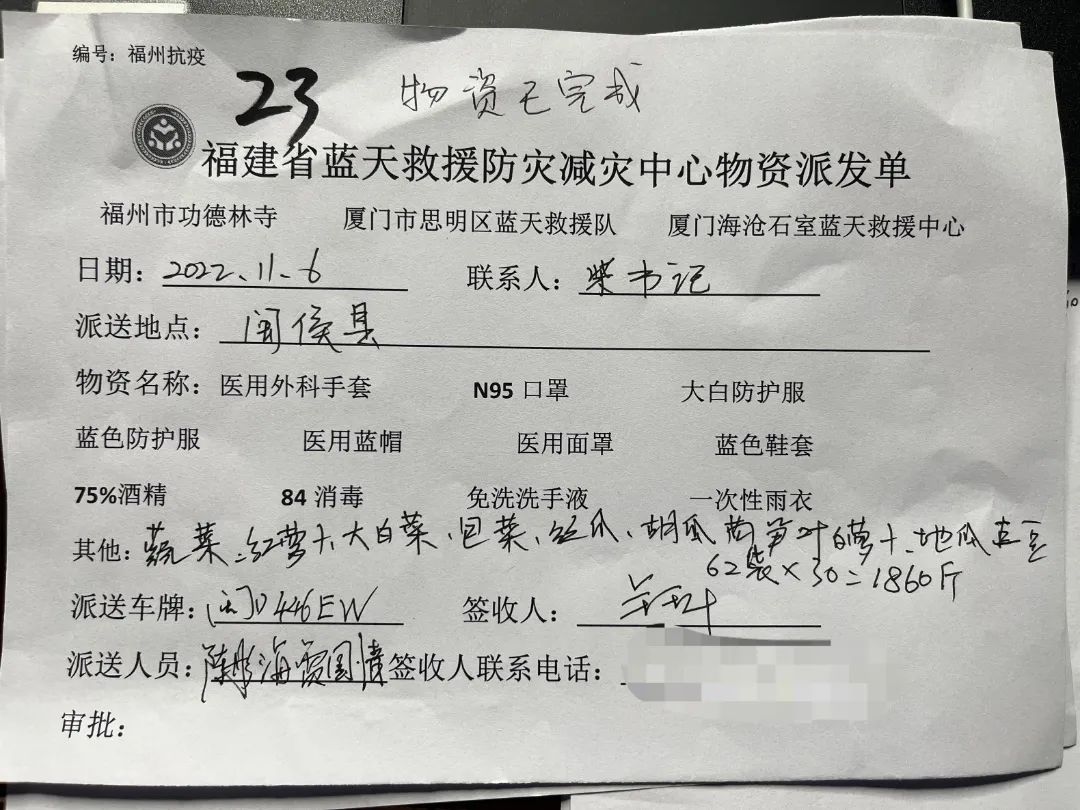 编号：福州抗疫
23 物资已完成
福建省蓝天救援防灾减灾中心物资派发单
福州市功德林寺 厦门市思明区蓝天救援队 厦门海沧石室蓝天救援中心
日期：2022.11.6 联系人：柴书记
派送地点：闽侯县
物资名称：医用外科手套 N95 口罩 大白防护服
蓝色防护服 医用蓝帽 医用面罩 蓝色鞋套
75%酒精 84 消毒 免洗洗手液 一次性雨衣
其他：蔬菜：红萝卜、大白菜、包菜、丝瓜、胡瓜 白萝卜、地瓜
62袋×30=1860斤
派送车牌：闽D446EW 签收人：
派送人员：陈彤海 贾国情 签收人联系电话：
审批：